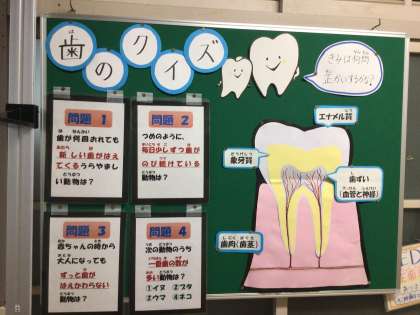 歯のクイズ
きみは何問
正かいするかな?
問題 1
歯が何回おれても
新しい歯がはえ
てくるうらやまし
い動物は?
問題 2
つめのように、
毎日少しずつ歯が
のび続けている
動物は?
問題 3
赤ちゃんの時から
大人になっても
ずっと歯が
はえかわらない
動物は?
問題 4
次の動物のうち
一番歯の数が
多い動物は?
①イヌ ②ブタ
③ウマ ④ネコ
エナメル質
象牙質
歯ずい
(血管と神経)
歯肉(歯茎)